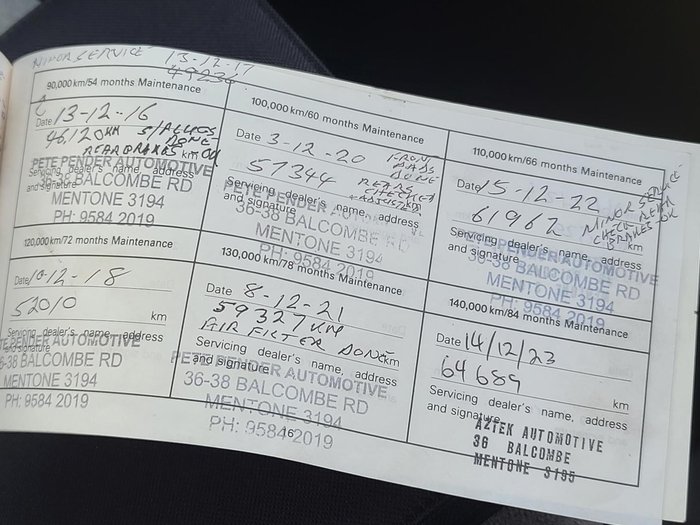 MINOR SERVICE 13-12-17
49236
90,000 km/54 months Maintenance
Date 13-12-16
46120KM S/PLUGS
DONE
REAR BRAKES km OK
Servicing dealer's name, address
and signature
PETE PENDER AUTOMOTIVE
36-38 BALCOMBE RD
MENTONE 3194
PH: 9584 2019
100,000 km/60 months Maintenance
Date 3-12-20 FRON
PADS
DONE
57344 REARS
CHECKED
+ ADJUSTED
Servicing dealer's name, address
and signature
PETE PENDER AUTOMOTIVE
36-38 BALCOMBE RD
MENTONE 3194
PH: 9584 2019
110,000 km/66 months Maintenance
Date 15-12-22
61962 km
MINOR SERVICE
CHECK REAR
BRAKES OK
Servicing dealer's name, address
and signature
PETE PENDER AUTOMOTIVE
36-38 BALCOMBE RD
MENTONE 3194
PH: 9584 2019
120,000 km/72 months Maintenance
Date 10-12-18
52010 km
Servicing dealer's name, address
and signature
PETE PENDER AUTOMOTIVE
36-38 BALCOMBE RD
MENTONE 3194
PH: 9584 2019
130,000 km/78 months Maintenance
Date 8-12-21
59327 KM
AIR FILTER DONE km
Servicing dealer's name, address
and signature
PETE PENDER AUTOMOTIVE
36-38 BALCOMBE RD
MENTONE 3194
PH: 9584 2019
140,000 km/84 months Maintenance
Date 14/12/23
64689 km
Servicing dealer's name, address
and signature
AZTEK AUTOMOTIVE
36 BALCOMBE
MENTONE 3195
16